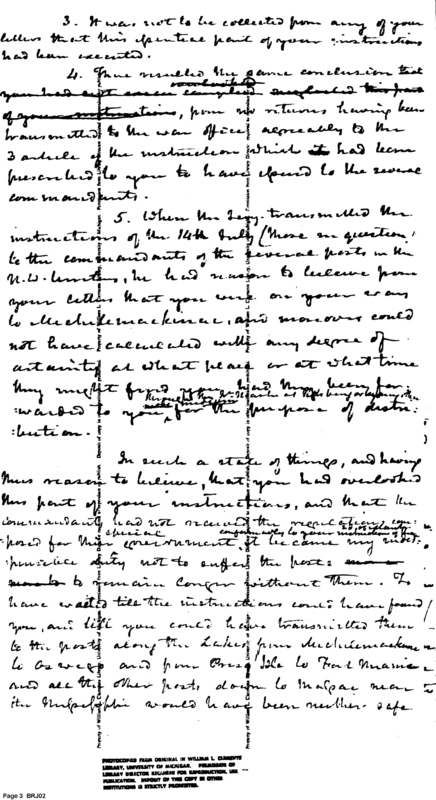 3. It was not to be collected from any of your
letters that this essential part of your instructions
had been executed.
4. There resulted the same conclusion that
overlooked
you had not neglected this part
of your instructions, from no returns having been
transmitted to the war office agreeably to the
3 article of the instruction which it had been
prescribed to you to have issued to the several
commandants.
5. When the Secy. transmitted the
instructions of the 14th July (those in question)
to the commandants of the several posts in the
N.W. he had reason to believe from
your letters that you were on your way
to Michilimackinac, and moreover could
not have calculated with any degree of
certainty at what place or at what time
they might find you, had they been for
:warded to you, for the purpose of distri
:bution.
In such a state of things, and having
thus reason to believe, that you had overlooked
this part of your instructions, and that the
commandants had not received the regulations com
:posed for their special government, it became my indis
conformably to your instructions of
:pensible duty not to suffer the posts
to remain longer without them. To
have waited till the instructions could have found
you, and till you could have transmitted them
to the posts along the Lakes from Michilimackinac
to Oswego and from Presq Isle to Fort
and all the other posts down to Massac near
the Mississippi would have been neither safe
PHOTOCOPIED FROM ORIGINAL IN WILLIAM L. CLEMENTS
LIBRARY, UNIVERSITY OF MICHIGAN. PERMISSION OF
LIBRARY DIRECTOR REQUIRED FOR REPRODUCTION, USE
PUBLICATION. DEPOSIT OF THIS COPY IN OTHER
INSTITUTIONS IS STRICTLY PROHIBITED.
Page 3 BRJ02